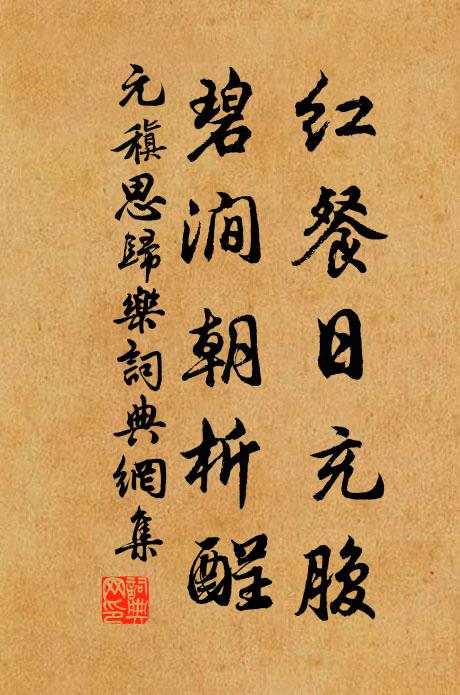 红餐日充腹
碧涧朝析酲
元稹思歸樂詞典網集
詞典網印